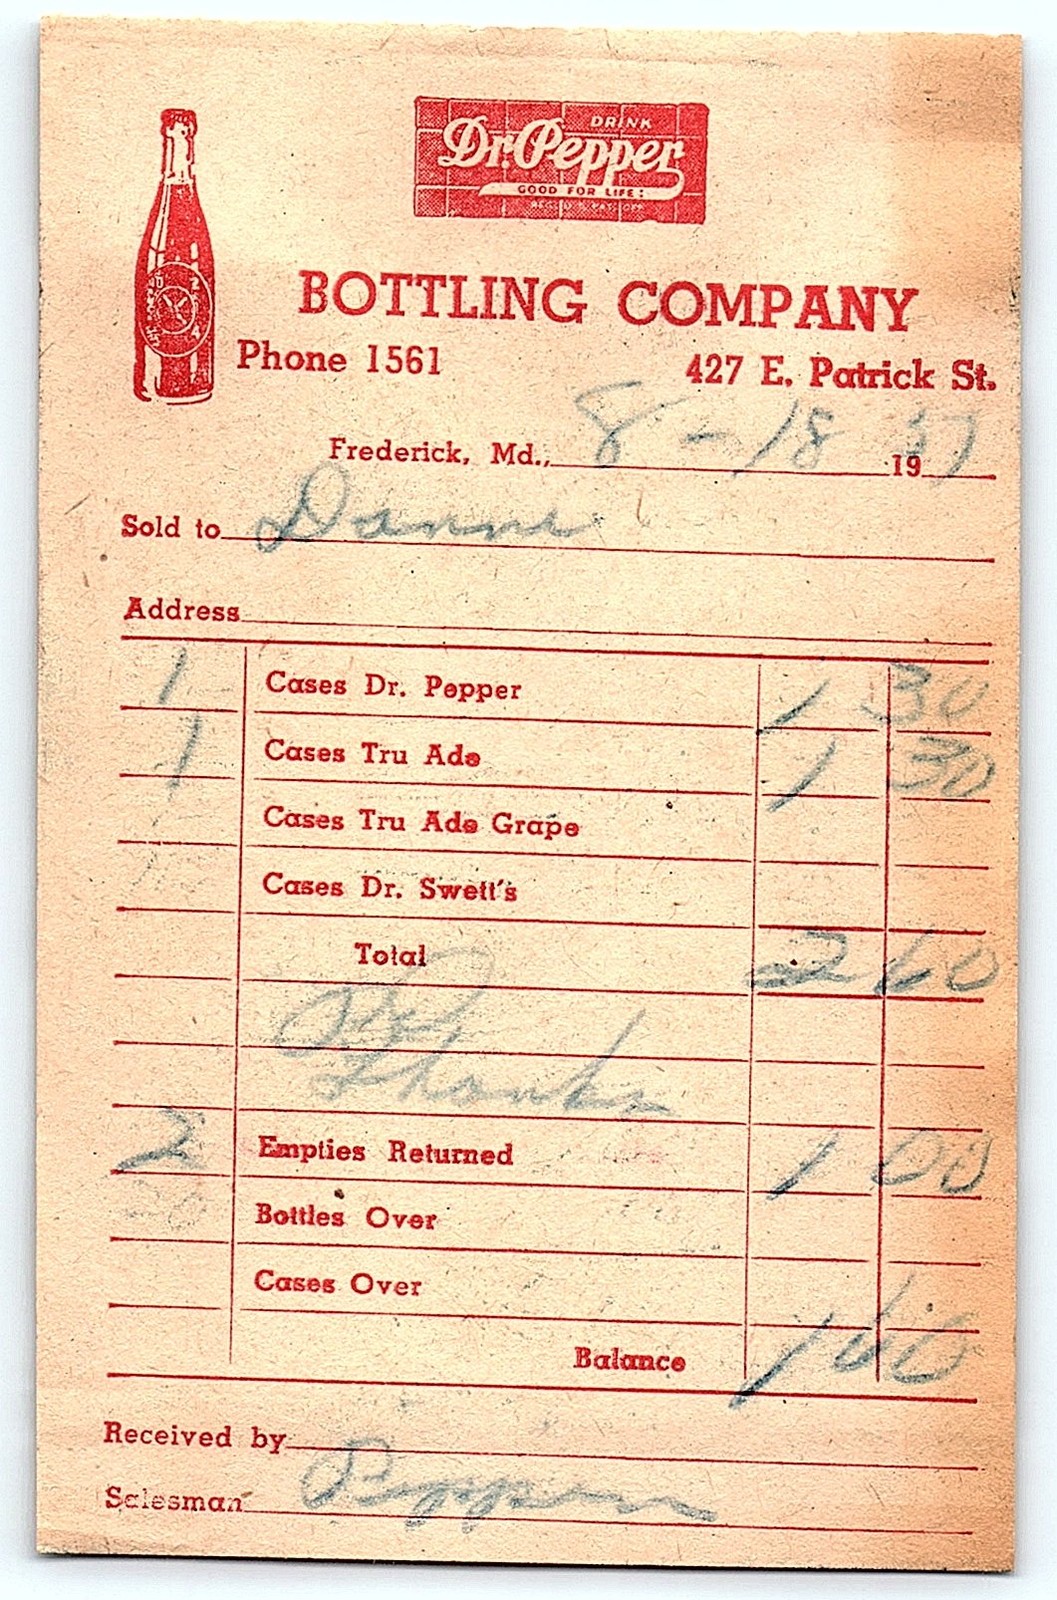 DRINK
Dr. Pepper
GOOD FOR LIFE!
REG. U.S. PAT. OFF.
BOTTLING COMPANY
Phone 1561 427 E. Patrick St.
Frederick, Md., 8-18 1937
Sold to
Address
1 Cases Dr. Pepper 1 30
1 Cases Tru Ade 1 30
Cases Tru Ade Grape
Cases Dr. Swett's
Total 2 60
Pd
Thanks
2 Empties Returned 1 00
Bottles Over
Cases Over
Balance 1 60
Received by
Salesman